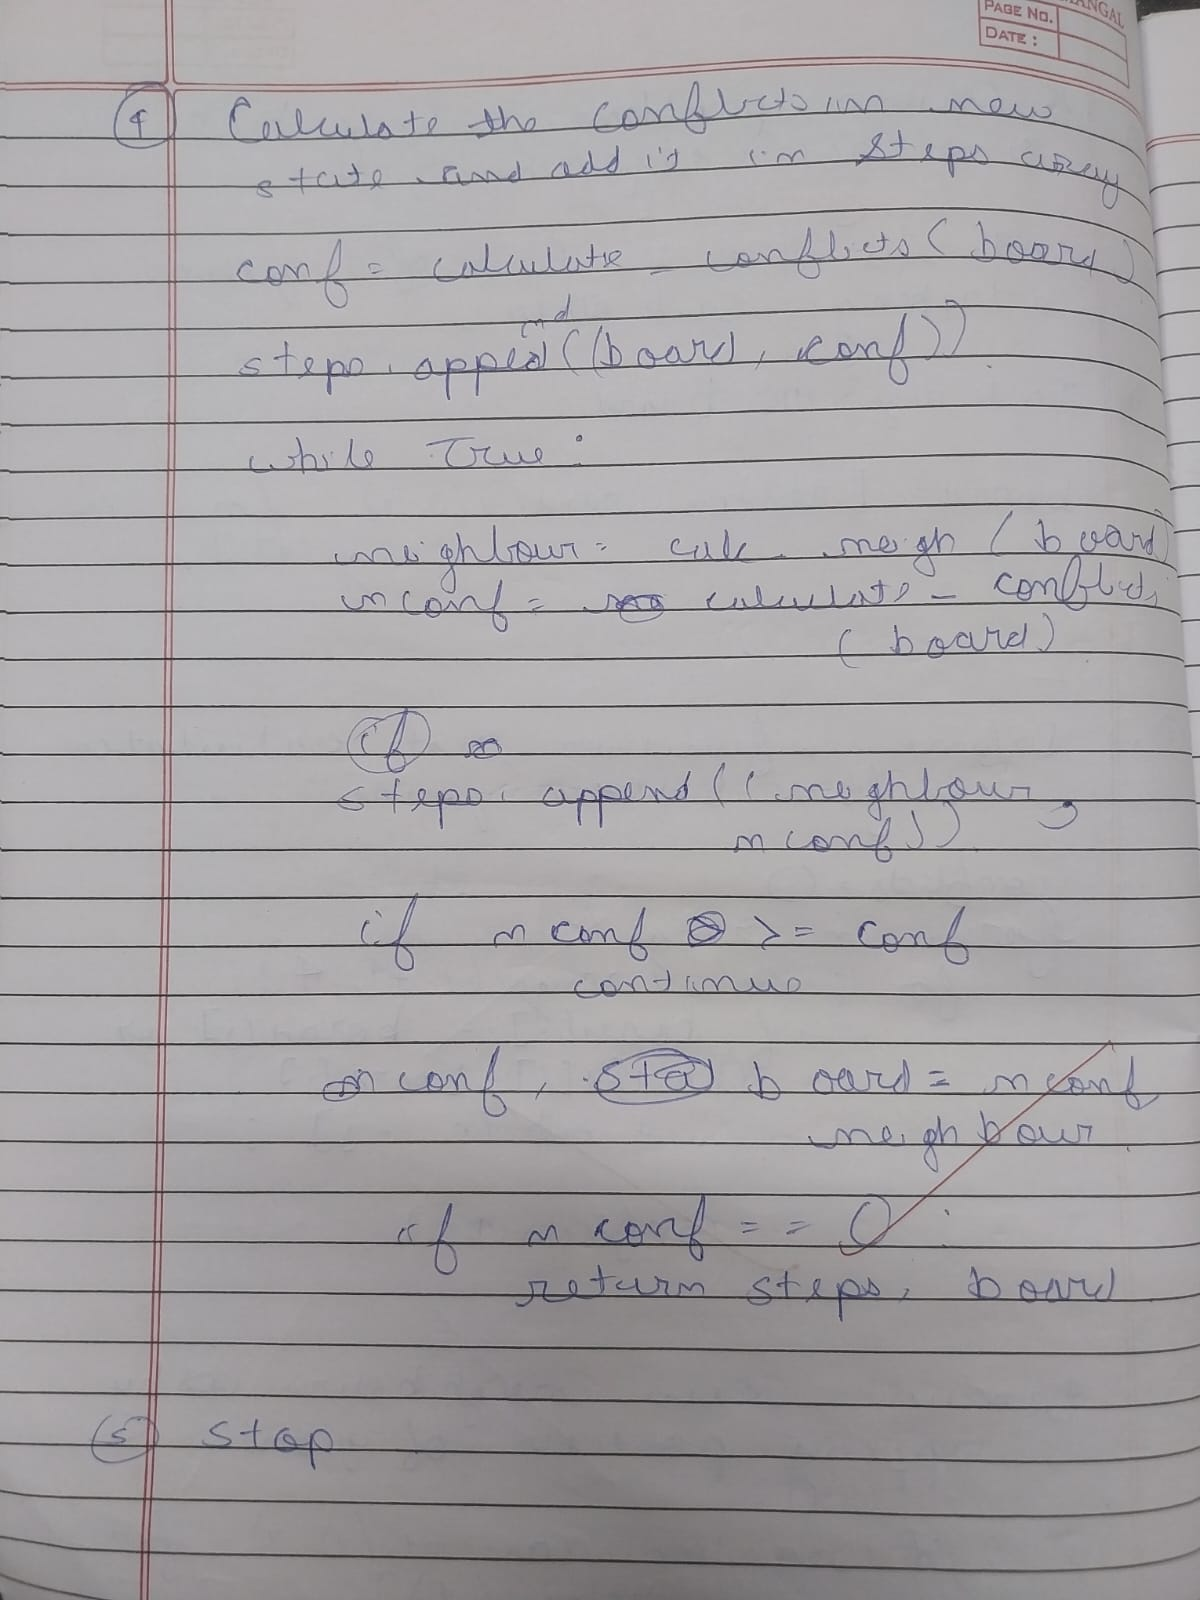 PAGE NO.
DATE :
④ Calculate the conflicts in new
state and add it in steps array
conf = calculate _ conflicts (board)
nd
steps. apped ((board, conf))
while True:
neighbour = calc _ neigh (board)
nconf = calculate _ conflicts
(board)
if
steps. append ((neighbour,
nconf))
if nconf >= conf
continue
conf, sta board = nconf
neighbour
if nconf == 0 :
return steps, board
⑤ stop